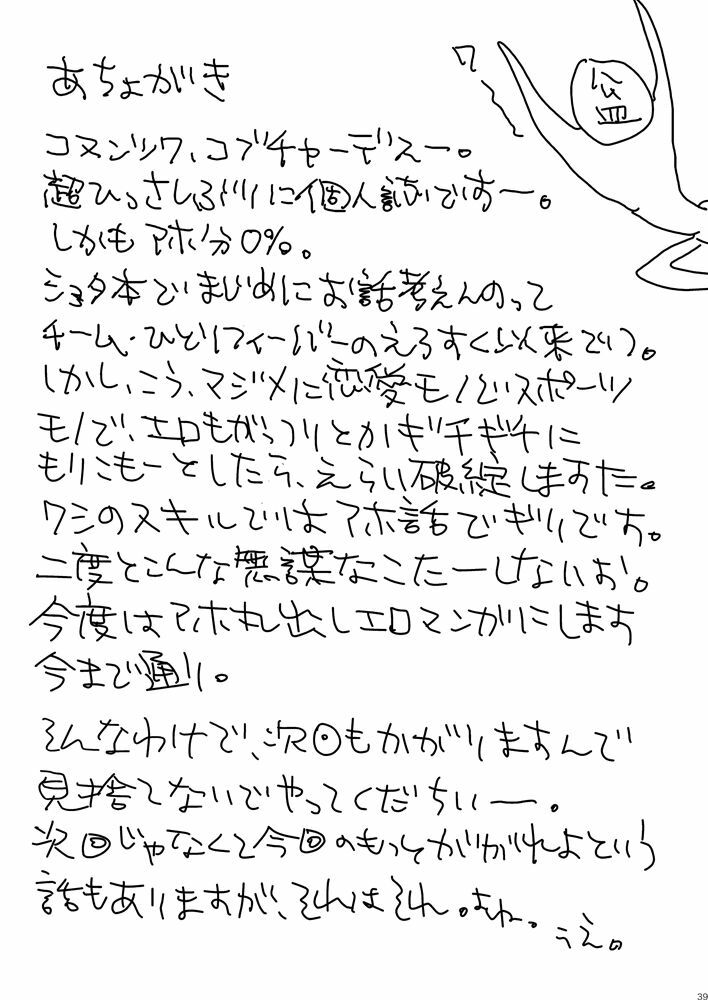 ワ
公皿
あちょがき
コヌンツワ、コブチャーデえー。
超ひっさしぶりに個人誌ですー。
しかもアホ分0%。
ショタ本でまじめにお話考えんのって
チーム・ひとりフィーバーのえろすく以来でつ。
しかし、こう、マジメに恋愛モノでスポーツ
モノで、エロもがっつりとかギチギチに
もりこもーとしたら、えらい破綻しますた。
ワシのスキルではアホ話でギリです。
二度とこんな無謀なこたーしないお。
今度はアホ丸出しエロマンガにします
今まで通り。
そんなわけで、次回もかがりますんで
見捨てないでやってくだちいー。
次回じゃなくて今回のもっとがかれよという
話もありますが、それはそれ。よね。
こえ。
39